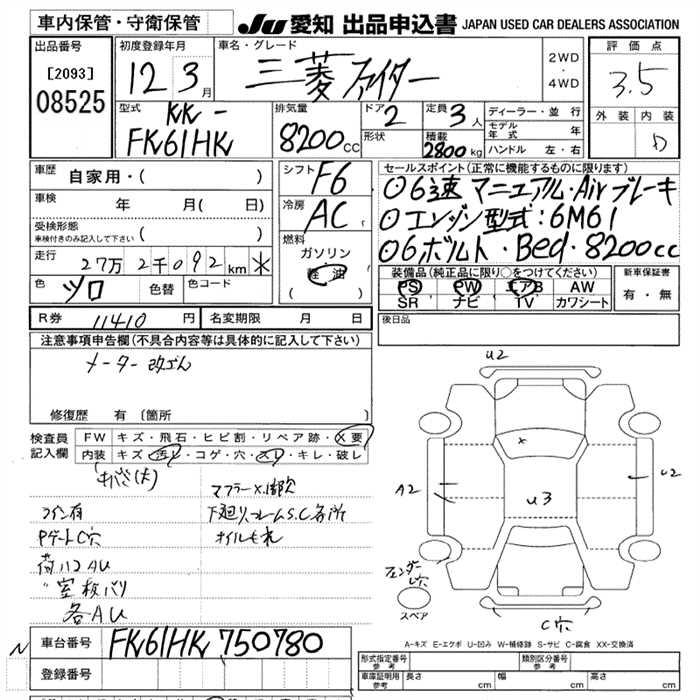 車内保管・守衛保管 JU 愛知 出品申込書 JAPAN USED CAR DEALERS ASSOCIATION
出品番号 初度登録年月 車名・グレード 評価点
[2093] 08525
12 3月 三菱 ファイター 2WD・4WD 3.5
型式 排気量 ドア 2 定員 3人 ディーラー・並行 外装 内装
KK-
FK61HK 8200cc 形状 積載 2800kg モデル年式 年 D
ハンドル 左・右
車歴 自家用・( ) シフト F6 セールスポイント(正常に機能するものに限ります)
車検 年 月( 日) 冷房 AC 〇6速 マニュアル・Airブレーキ
受検形態 ( ) 〇エンジン型式:6M61
車検付きのみ記入して下さい 燃料 〇6ボルト・Bed・8200cc
走行 27万2千092km ※ ガソリン
軽油
( )
装備品(純正品に限り〇をつけてください) 新車保証書
色 シロ 色替 色コード PS PW エアB AW 有・無
SR ナビ TV カワシート
R券 11410円 名変期限 月 日 後日品
注意事項申告欄(不具合内容等は具体的に記入して下さい)
メーター改ざん
修復歴 有 (箇所
検査員記入欄 FW キズ・飛石・ヒビ割・リペア跡・X要
内装 キズ・汚レ・コゲ・穴・スレ・キレ・破レ
マフラーX腐欠
下廻り、フレームS.C各所
オイルもれ
PゲートC穴
各AU
U2
A2
U3
U2
C穴
スペア
A-キズ E-エクボ U-凹み W-補修跡 S-サビ C-腐食 XX-交換済
車台番号 FK61HK 750780
登録番号
形式指定番号 参考 類別区分番号 参考
車庫証明用 参考 長さ cm 幅 cm 高さ cm